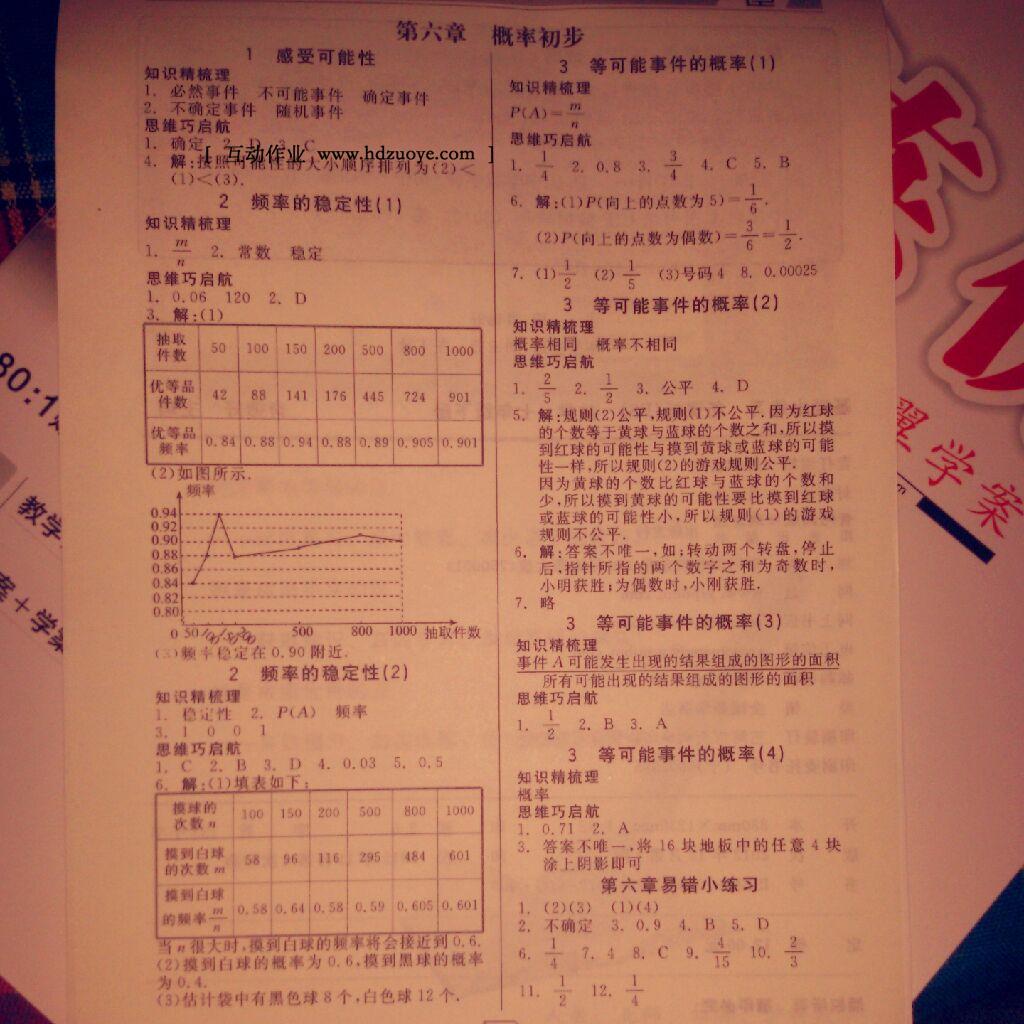 第六章 概率初步
1 感受可能性
知识精梳理
1. 必然事件 不可能事件 确定事件
2. 不确定事件 随机事件
思维巧启航
1. 确定 2. D 3. C
[ 互动作业 www.hdzuoye.com ]
4. 解:按照可能性的大小顺序排列为(2)<
(1)<(3).
2 频率的稳定性(1)
知识精梳理
1. m/n 2. 常数 稳定
思维巧启航
1. 0.06 120 2. D
3. 解:(1)
抽取件数 50 100 150 200 500 800 1000
优等品件数 42 88 141 176 445 724 901
优等品频率 0.84 0.88 0.94 0.88 0.89 0.905 0.901
(2)如图所示.
频率
0.94
0.92
0.90
0.88
0.86
0.84
0.82
0.80
0 50 100 150 200 500 800 1000 抽取件数
(3)频率稳定在0.90附近.
2 频率的稳定性(2)
知识精梳理
1. 稳定性 2. P(A) 频率
3. 1 0 0 1
思维巧启航
1. C 2. B 3. D 4. 0.03 5. 0.5
6. 解:(1)填表如下:
摸球的次数n 100 150 200 500 800 1000
摸到白球的次数m 58 96 116 295 484 601
摸到白球的频率m/n 0.58 0.64 0.58 0.59 0.605 0.601
当n很大时,摸到白球的频率将会接近到0.6.
(2)摸到白球的概率为0.6,摸到黑球的概率
为0.4.
(3)估计袋中有黑色球8个,白色球12个.
3 等可能事件的概率(1)
知识精梳理
P(A)=m/n
思维巧启航
1. 1/4 2. 0.8 3. 3/4 4. C 5. B
6. 解:(1)P(向上的点数为5)=1/6.
(2)P(向上的点数为偶数)=3/6=1/2.
7. (1)1/2 (2)1/5 (3)号码4 8. 0.00025
3 等可能事件的概率(2)
知识精梳理
概率相同 概率不相同
思维巧启航
1. 2/5 2. 1/2 3. 公平 4. D
5. 解:规则(2)公平,规则(1)不公平.因为红球
的个数等于黄球与蓝球的个数之和,所以摸
到红球的可能性与摸到黄球或蓝球的可能
性一样,所以规则(2)的游戏规则公平.
因为黄球的个数比红球与蓝球的个数和
少,所以摸到黄球的可能性要比摸到红球
或蓝球的可能性小,所以规则(1)的游戏
规则不公平.
6. 解:答案不唯一,如;转动两个转盘,停止
后,指针所指的两个数字之和为奇数时,
小明获胜;为偶数时,小刚获胜.
7. 略
3 等可能事件的概率(3)
知识精梳理
事件A可能发生出现的结果组成的图形的面积
所有可能出现的结果组成的图形的面积
思维巧启航
1. 1/2 2. B 3. A
3 等可能事件的概率(4)
知识精梳理
概率
思维巧启航
1. 0.71 2. A
3. 答案不唯一,将16块地板中的任意4块
涂上阴影即可
第六章易错小练习
1. (2)(3) (1)(4)
2. 不确定 3. 0.9 4. B 5. D
6. 1/4 7. 4 8. C 9. 4/15 10. 2/3
11. 1/2 12. 1/4
学案
教学
案+学案